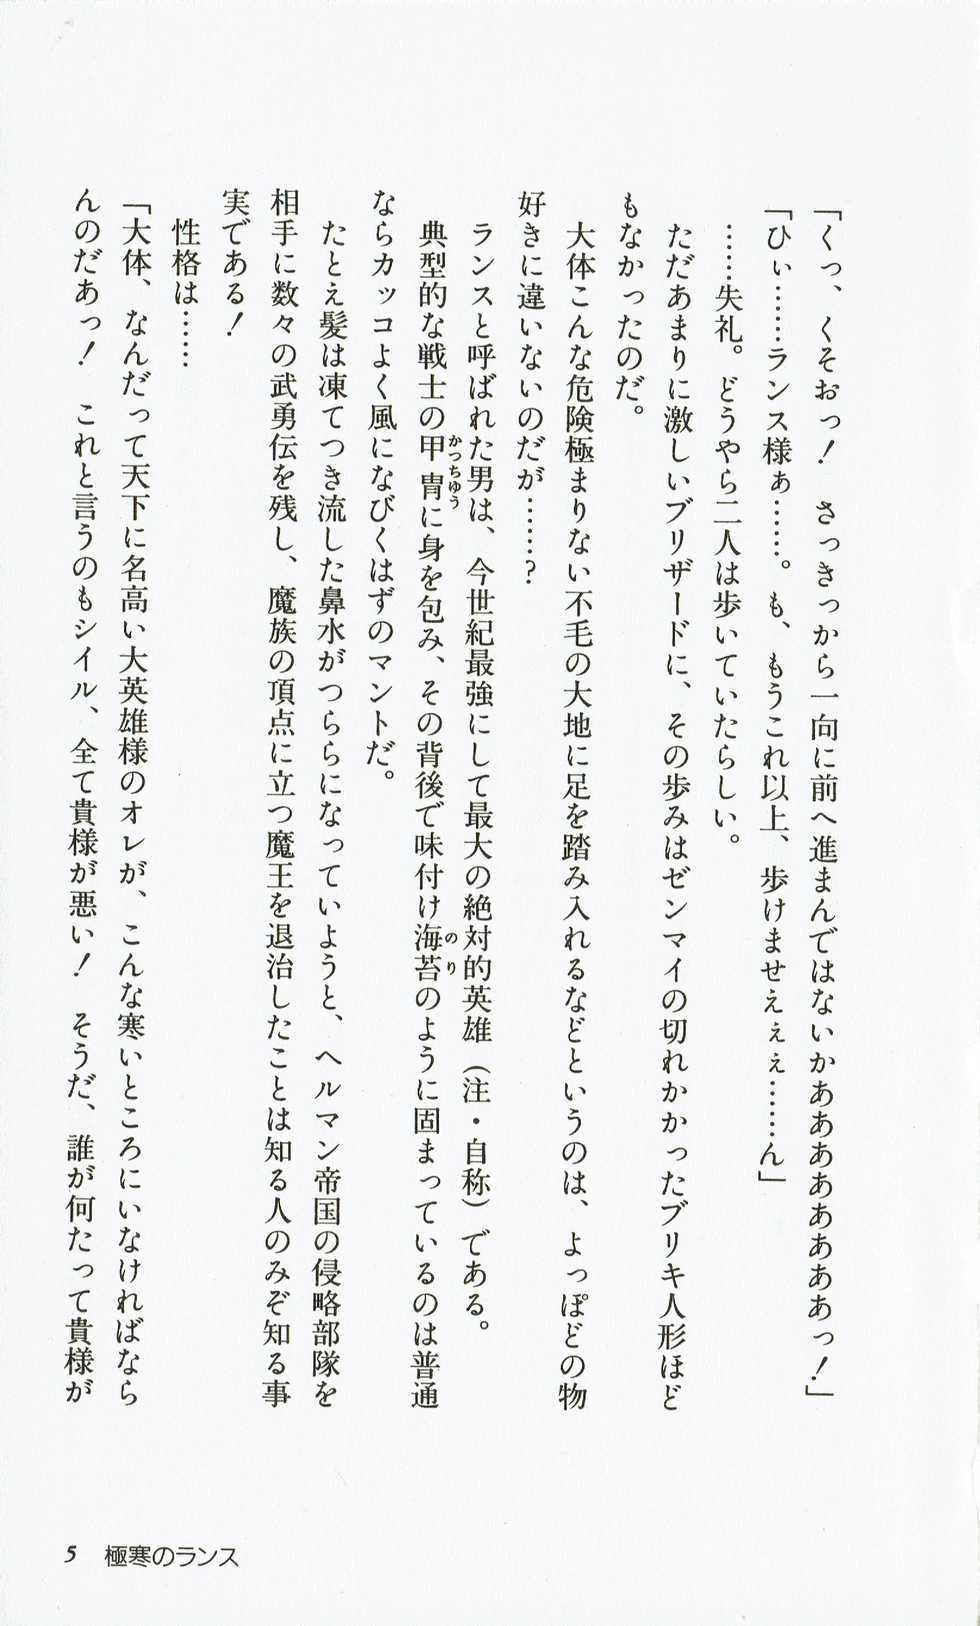 「くっ、くそおっ！　さっきっから一向に前へ進まんではないかああああああああっ！」
「ひぃ……ランス様ぁ……。も、もうこれ以上、歩けませえぇぇ……ん」
　……失礼。どうやら二人は歩いていたらしい。
　ただあまりに激しいブリザードに、その歩みはゼンマイの切れかかったブリキ人形ほど
もなかったのだ。
　大体こんな危険極まりない不毛の大地に足を踏み入れるなどというのは、よっぽどの物
好きに違いないのだが……？
　ランスと呼ばれた男は、今世紀最強にして最大の絶対的英雄（注・自称）である。
　典型的な戦士の甲冑かっちゅうに身を包み、その背後で味付け海苔のりのように固まっているのは普通
ならカッコよく風になびくはずのマントだ。
　たとえ髪は凍てつき流した鼻水がつららになっていようと、ヘルマン帝国の侵略部隊を
相手に数々の武勇伝を残し、魔族の頂点に立つ魔王を退治したことは知る人のみぞ知る事
実である！
　性格は……
「大体、なんだって天下に名高い大英雄様のオレが、こんな寒いところにいなければなら
んのだあっ！　これと言うのもシイル、全て貴様が悪い！　そうだ、誰が何たって貴様が
5　極寒のランス